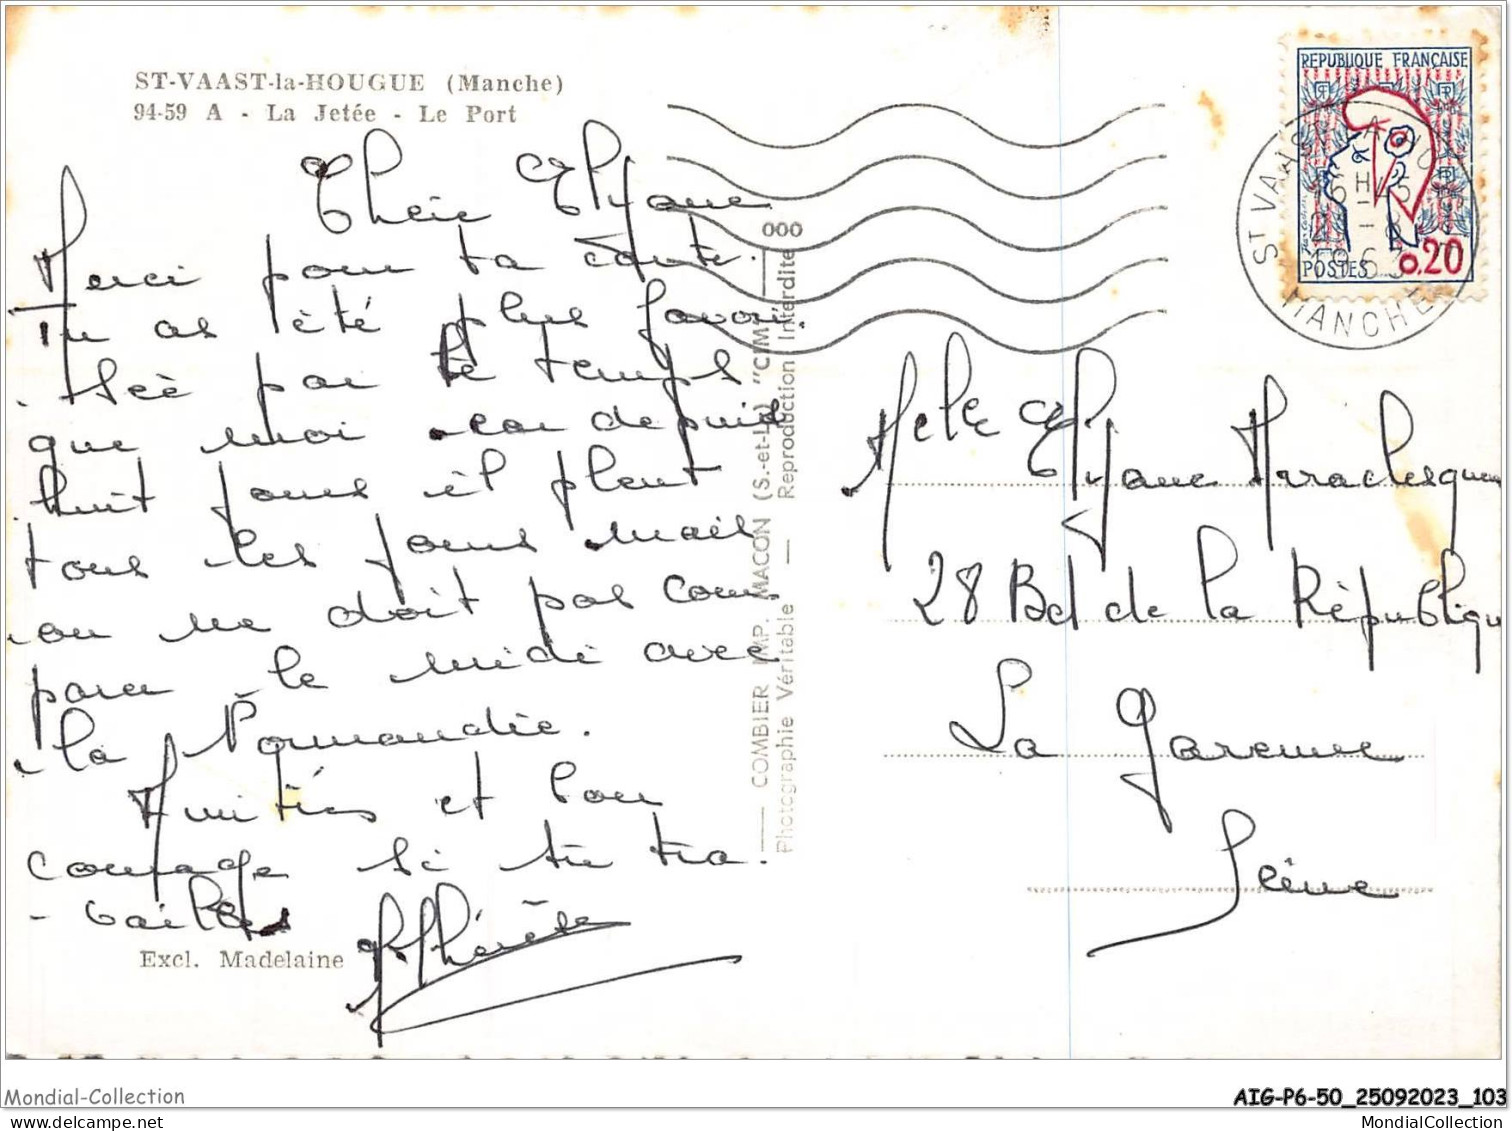 ST-VAAST-la-HOUGUE (Manche)
94-59 A - La Jetée - Le Port
Chère Elyane
Merci pour ta carte.
Tu as été plus favori
sée par le temps
que moi car depuis
huit jours il pleut
tous les jours mais
on ne doit pas com
parer le midi avec
la Normandie.
Amitiés et bon
courage si tu tra.
- vailles
Thérèse
Excl. Madelaine
000
COMBIER IMP. MACON (S.-et-L.) "CIM"
Photographie Véritable — Reproduction Interdite
RÉPUBLIQUE FRANÇAISE
POSTES 0.20
ST VAAST
16 H 15
1963
MANCHE
Melle Elyane
28 Bd de la Républiqu
La Garenne
Seine
Mondial-Collection
AIG-P6-50_25092023_103
https://www.delcampe.net
MondialCollection